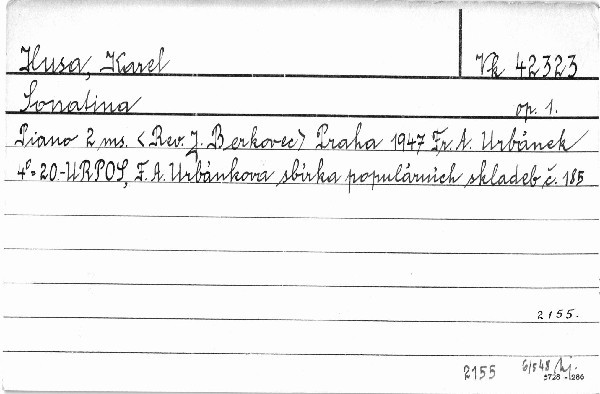 Husa, Karel Vk 42323
Sonatina op. 1.
Piano 2 ms. <Rev. J. Berkovec> Praha 1947, Fr. A. Urbánek
4°= 20 - URPOS, F. A. Urbánkova sbírka populárních skladeb č. 185
2155.
2155 6/5 48
2728 - 1286